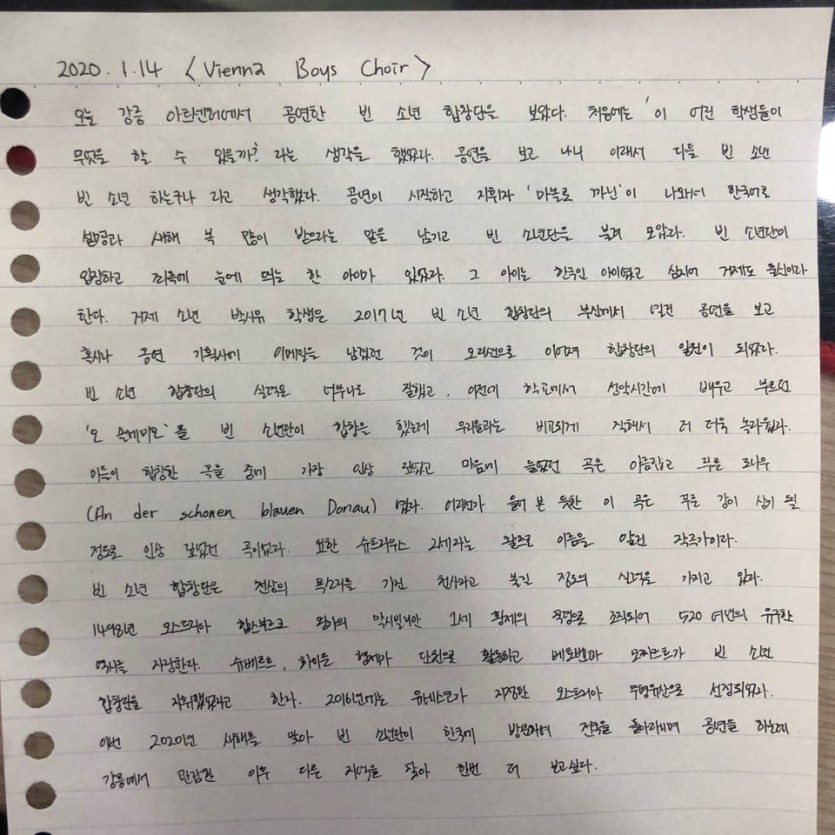 2020. 1.14 <Vienna Boys Choir>
오늘 강릉 아트센터에서 공연한 빈 소년 합창단을 보았다. 처음에는 '이 어린 학생들이
무엇을 할 수 있을까?' 라는 생각을 했었다. 공연을 보고 나니 이래서 다들 빈 소년
빈 소년 하는구나 라고 생각했다. 공연이 시작하고 지휘자 '마놀로 까닌'이 나와서 한국어로
설명과 새해 복 많이 받으라는 말을 남기고 빈 소년단을 불러 모았다. 빈 소년단이
입장하고 좌측에 눈에 띄는 한 아이가 있었다. 그 아이는 한국인 아이였고 심지어 거제도 출신이라
한다. 거제 소년 박시유 학생은 2017년 빈 소년 합창단의 부산에서 열린 공연을 보고
혹시나 공연 기획사에 이메일을 남겼던 것이 오디션으로 이어져 합창단의 일원이 되었다.
빈 소년 합창단의 실력은 너무나도 잘했고, 이전에 학교에서 성악시간에 배우고 부르던
'오 솔레미오'를 빈 소년단이 합창을 했는데 우리들과는 비교되게 잘해서 더 더욱 놀라웠다.
이들이 합창한 곡들 중에 가장 인상 깊었고 마음에 들었던 곡은 아름답고 푸른 도나우
(An der schonen blauen Donau) 였다. 어디선가 들어 본 듯한 이 곡은 푸른 강이 상기 될
정도로 인상 깊었던 곡이었다. 요한 슈트라우스 2세라는 왈츠로 이름을 알린 작곡가이다.
빈 소년 합창단은 천상의 목소리를 가진 천사라고 불릴 정도의 실력을 가지고 있다.
1498년 오스트리아 합스부르크 왕가의 막시밀리안 1세 황제의 칙령으로 조직되어 520 여년의 유구한
역사를 자랑한다. 슈베르트, 하이든 형제가 단원으로 활동하고 베토벤과 모차르트가 빈 소년
합창단을 지휘했었다고 한다. 2016년에는 유네스코가 지정한 오스트리아 무형유산으로 선정되었다.
이번 2020년 새해를 맞아 빈 소년단이 한국에 방문하여 전국을 돌아다니며 공연을 하는데
강릉에서 관람한 이후 다른 지역을 찾아 한번 더 보고싶다.